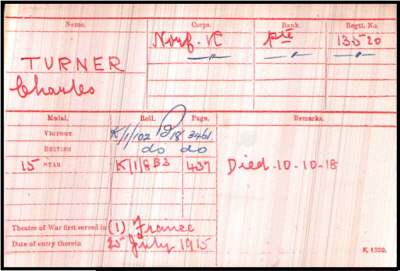 Name. Corps. Rank. Regtl. No.
TURNER Norf. R Pte 13520
Charles
Medal. Roll. Page. Remarks.
VICTORY K/1/102 B18 3461
BRITISH do do
15 STAR K/1/8B3 437 Died. 10-10-18
Theatre of War first served in (1) France
Date of entry therein 25 July 1915
K. 1380.